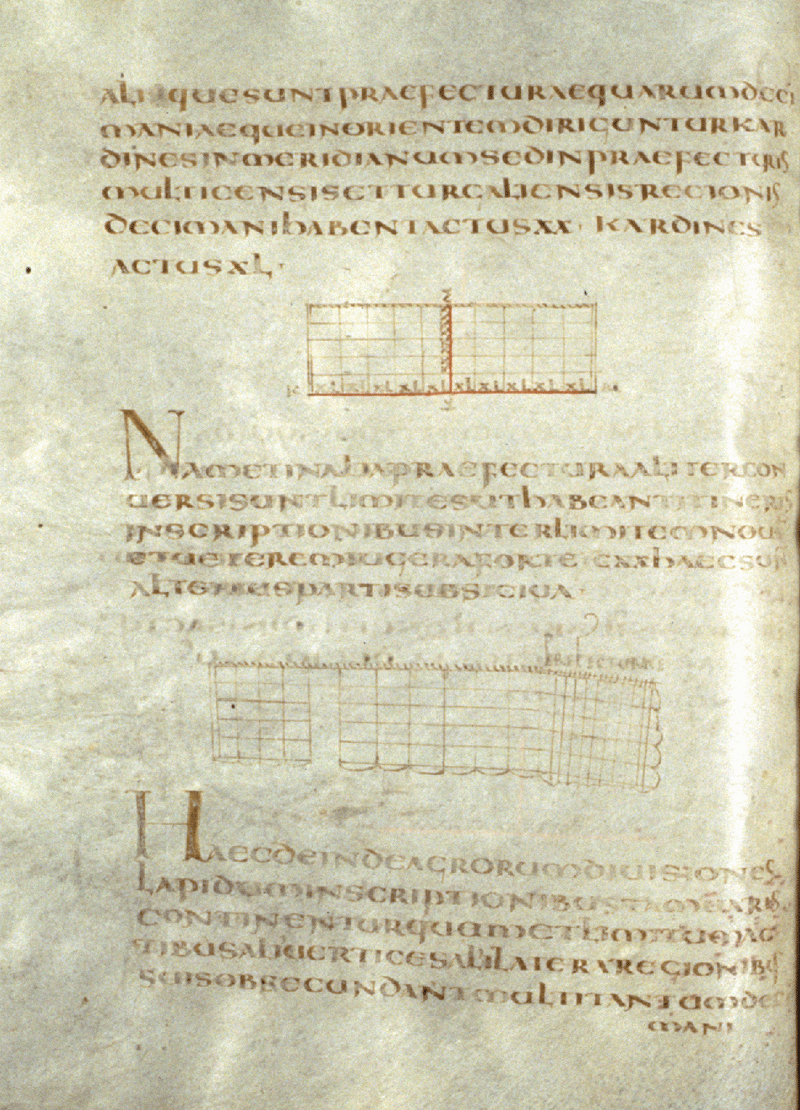 ALIIQUESUNTPRAEFECTURAEQUARUMDECI
MANIAEQUEINORIENTEMDIRIGUNTURKAR
DINESINMERIDIANUMSEDINPRAEFECTURIS
MULTICENSISETTURGALIENSISREGIONIS
DECIMANIHABENTACTUSXX· KARDINES
ACTUSXL·
XL XL XL XL XL XL XL XL XL XL
NAMETINALIAPRAEFECTURAALITERCON
UERSISUNTLIMITESUTHABEANTITINERIS
INSCRIPTIONIBUSINTERLIMITEMNOU
ETUETEREMIUGERAFORTE CXXHAECSUN
ALTERIUSPARTISUBSICIUA·
HAECDEINDEAGRORUMDIUISIONES
LAPIDUMINSCRIPTIONIBUSTAMUARIIS
CONTINENTURQUAMETLIMITUMAC
TIBUSALIIUERTICESALIILATERAREGIONIBUS
SUISOBSECUNDANTMULTITANTUMDE
MANI